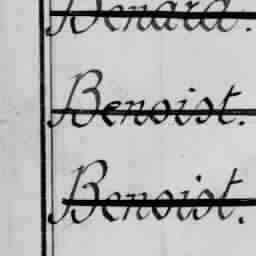 Benard.
Benoist.
Benoist.